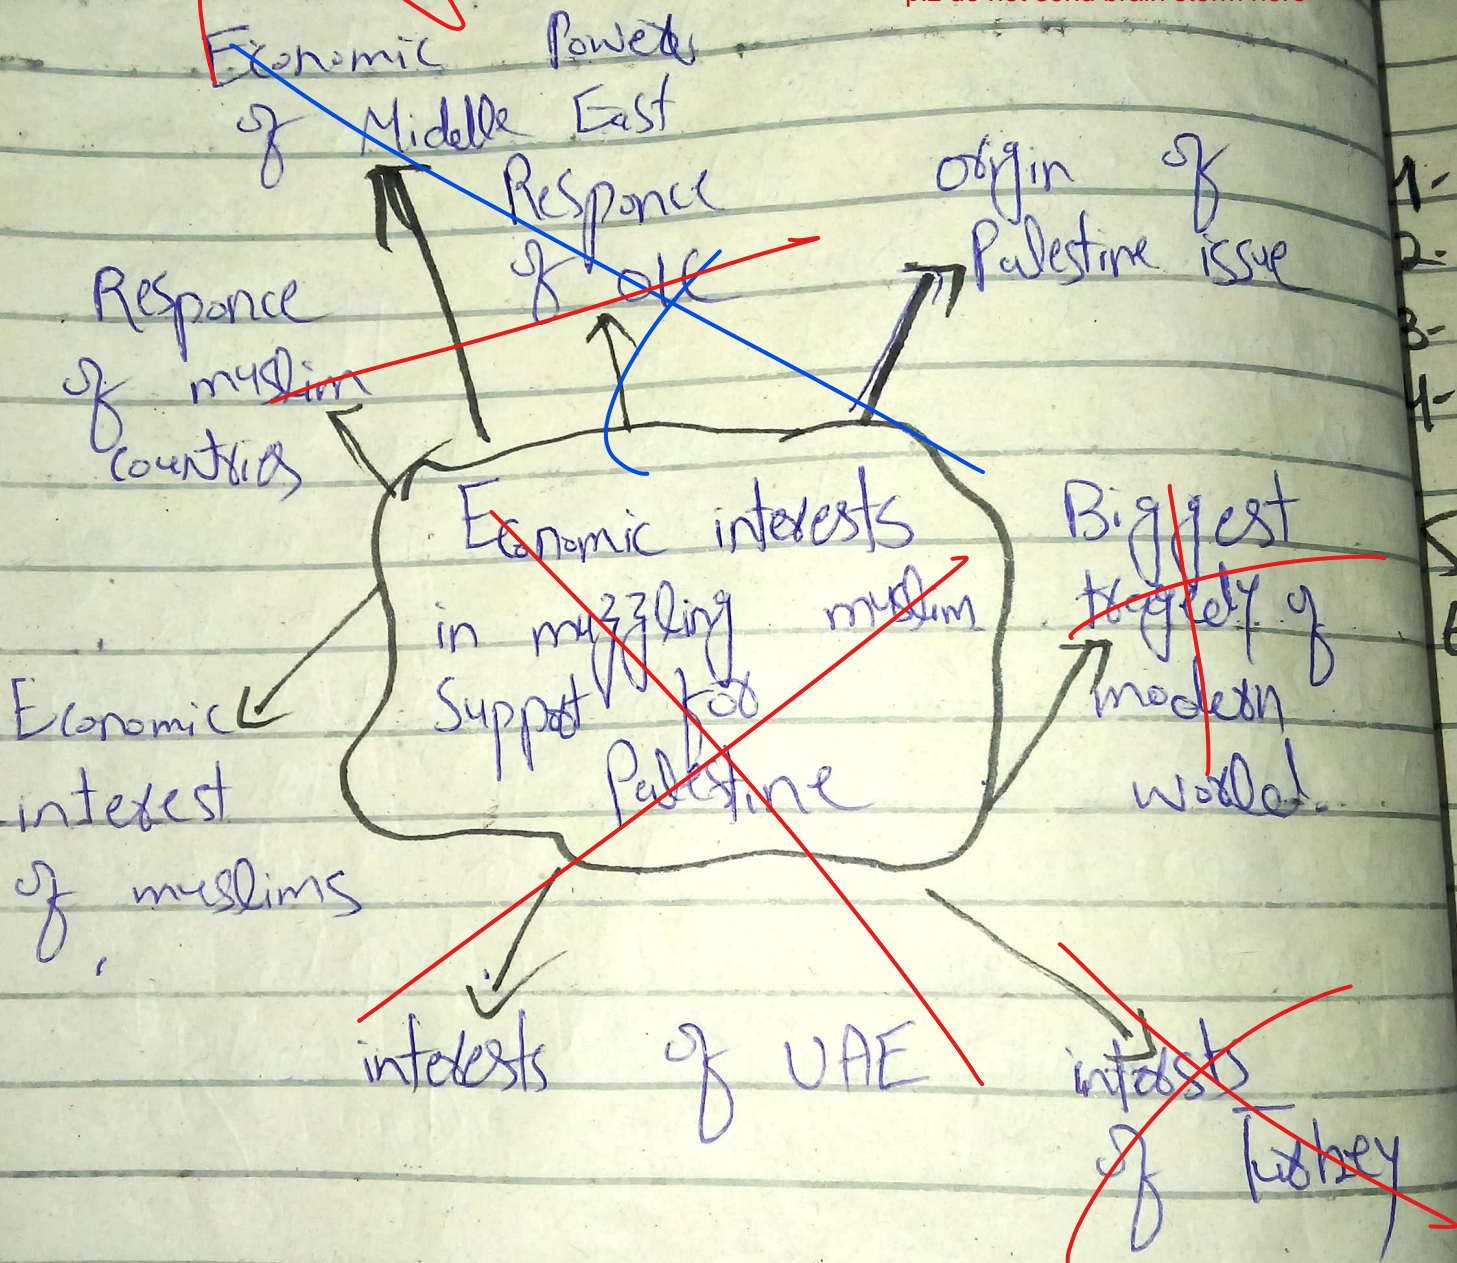 plz do not send brain storm here
Economic Powers
of Middle East
Responce
of OIC
origin of
Palestine issue
Responce
of muslim
countries
Economic interests
in muzzling muslim
Support for
Palestine
Biggest
tragedy of
modern
world.
Economic
interest
of muslims
interests of UAE
interests
of Turkey
1-
2-
3-
4-
5
6